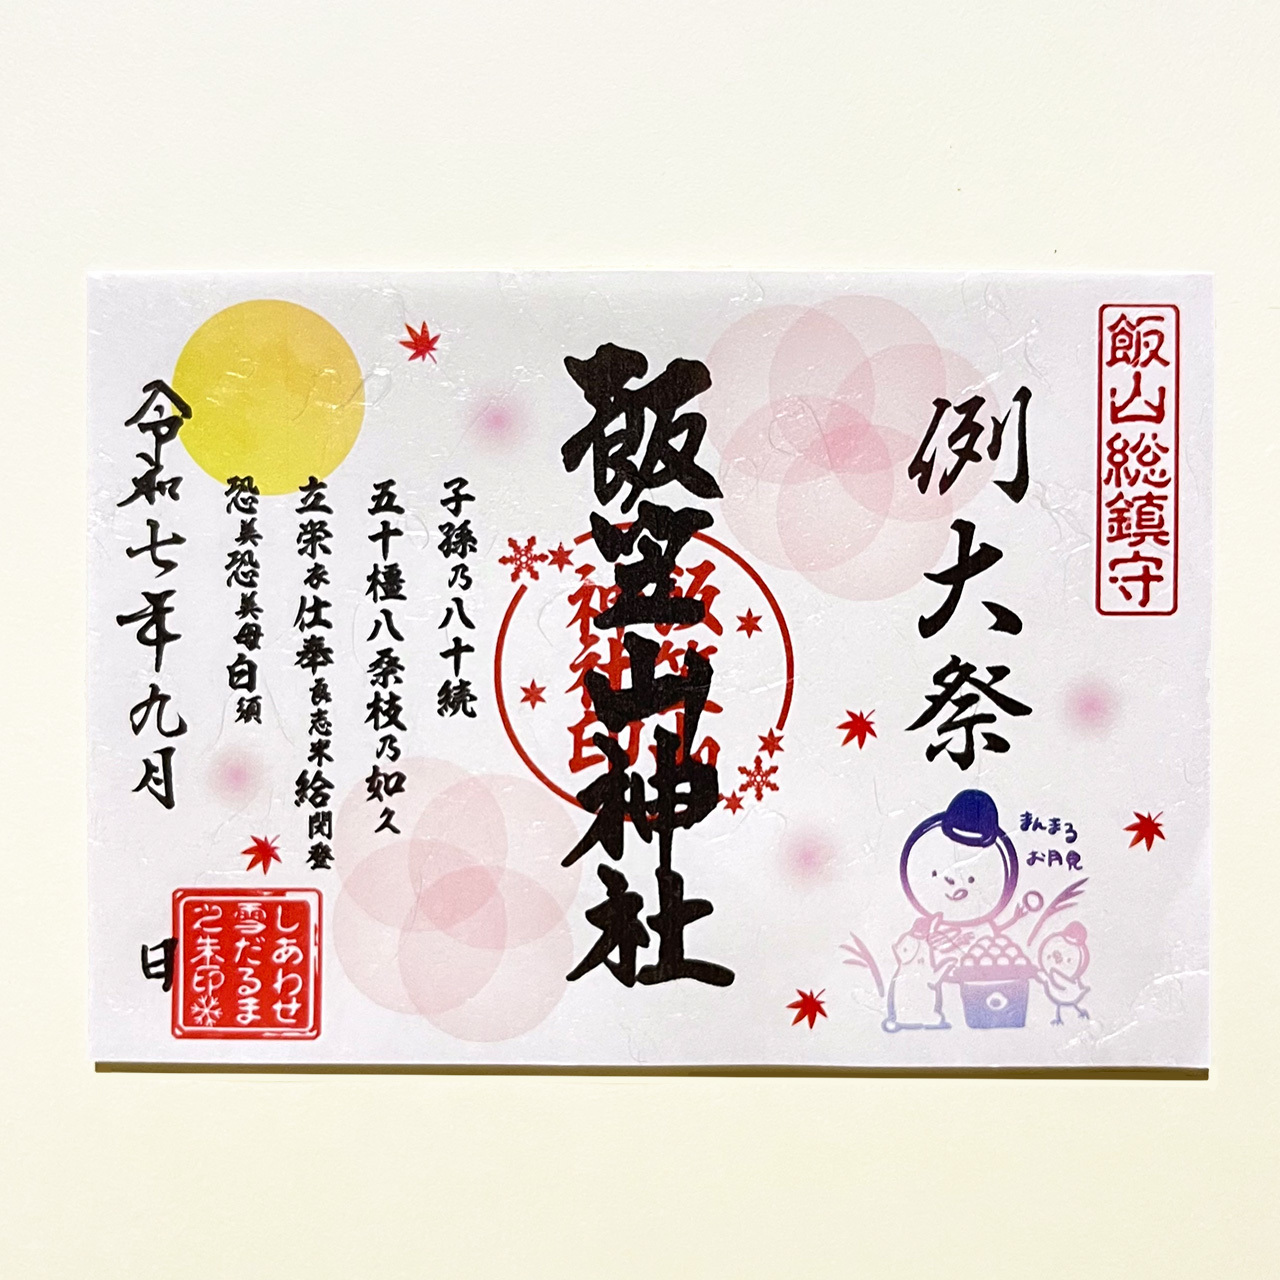 飯山総鎮守
例大祭
まんまる
お月見
飯笠山神社
飯笠山
神社印
子孫乃八十続
五十橿八桑枝乃如久
立栄衣仕奉良志米給閇登
恐美恐美母白須
令和七年九月 日
しあわせ
雪だるま
之朱印